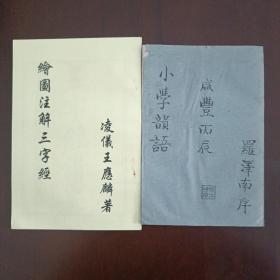 繪圖注解三字經
凌儀王應麟著
小學韻語
咸豐丙辰
羅澤南序